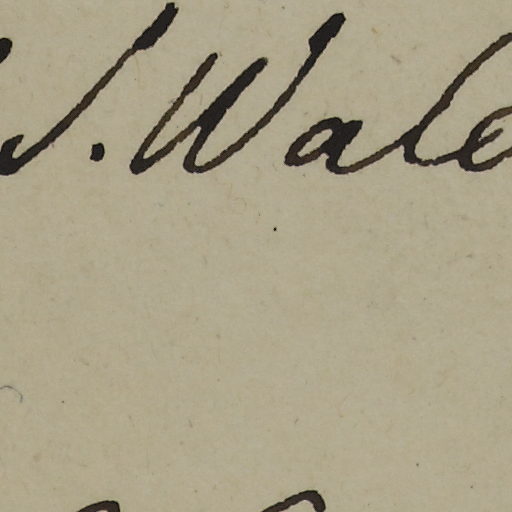 S. Wale